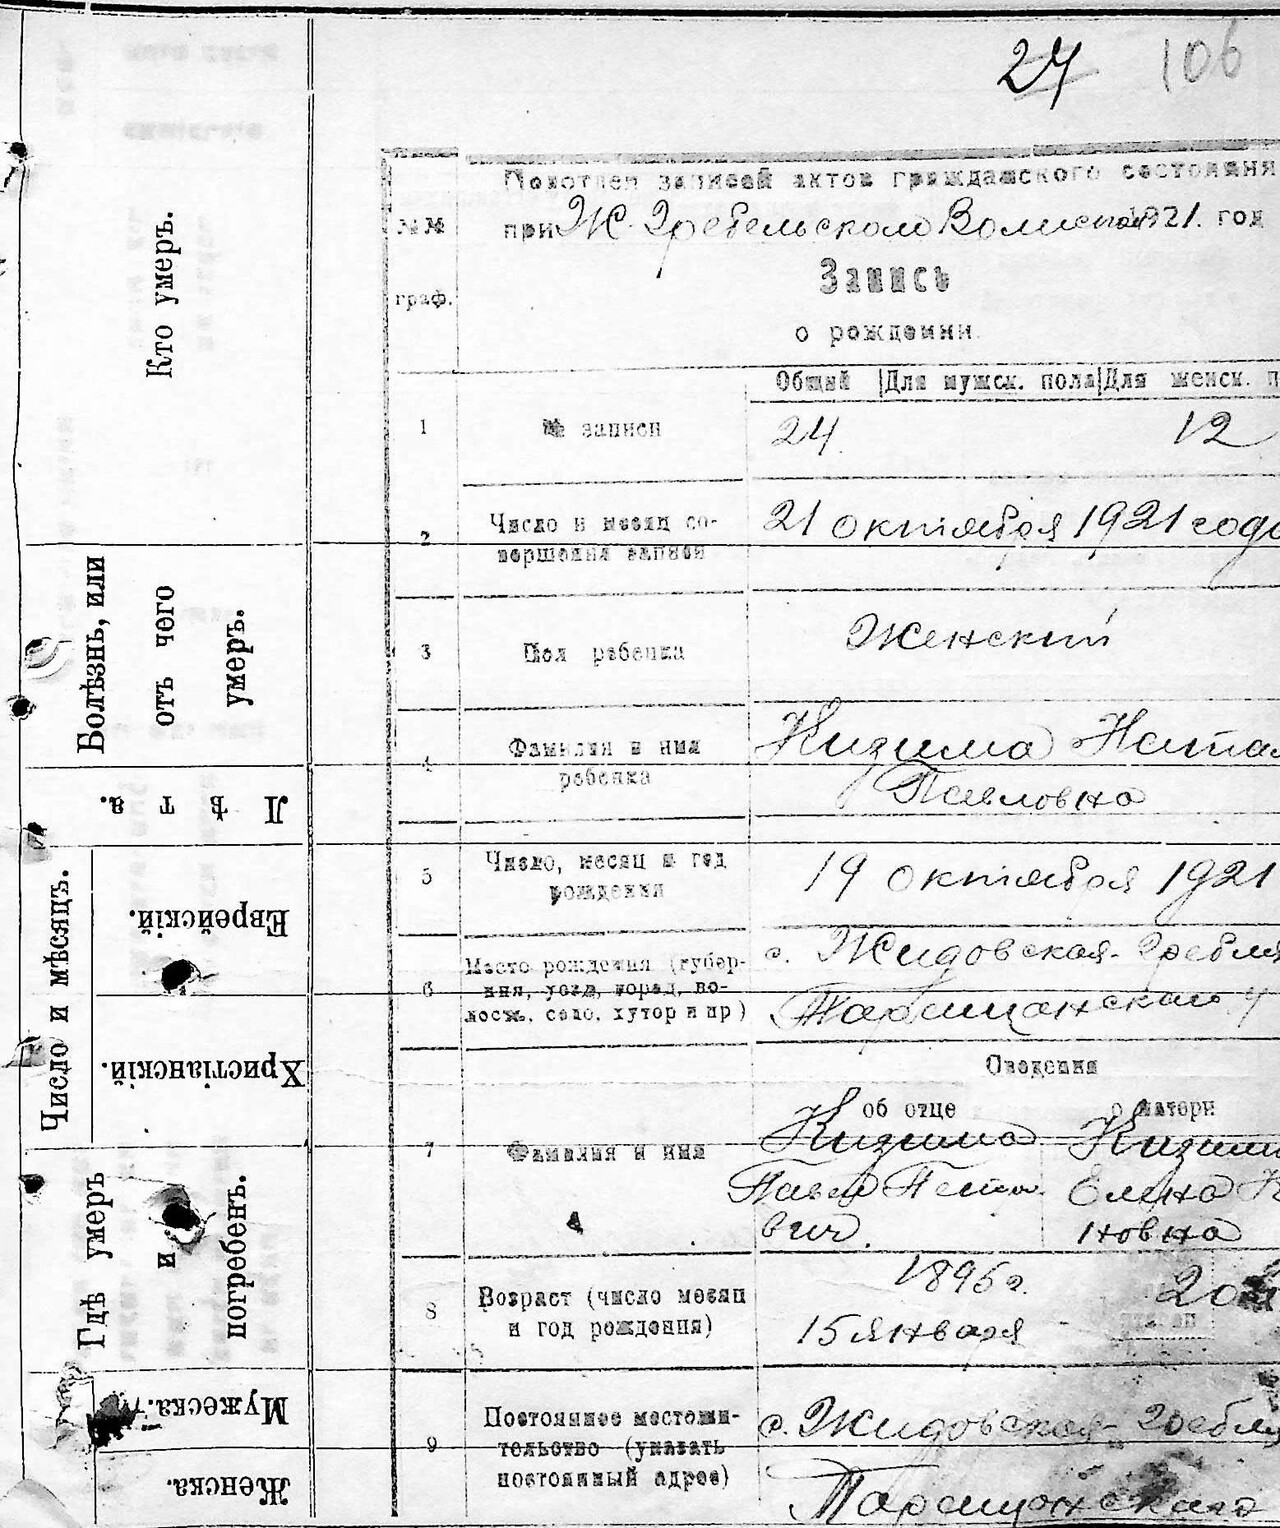 24 106
Кто умеръ.
Болѣзнь, или
отъ чего
умеръ.
Лѣта.
Число и мѣсяцъ.
Еврейскій.
Христіанскій.
Гдѣ умеръ
и
погребенъ.
Мужеска.
Женска.
№№
граф.
Подотдел записей актов гражданского состояния
при Ж. Гребельском 1921. год
Запись
о рождении.
Общий Для мужск. пола Для женск. п
1 № записи 24 12
2 Число и месяц со-
вершения записи
21 октября 1921 года
3 Пол ребенка Женский
4 Фамилия и имя
ребенка
Кизима Ната
Павловна
5 Число, месяц и год
рождения
19 октября 1921
6 Место рождения (губер-
ния, уезд, город, во-
лость, село, хутор и пр)
с. Жидовская-Гребля
Таращанского у
Сведения
об отце о матери
7 Фамилия и имя
Кизима
Павел Петро
вич.
Кизим
Елена
новна
8 Возраст (число месяц
и год рождения)
1895 г.
15 января
20
9 Постоянное местожи-
тельство (указать
постоянный адрес)
с. Жидовская-Гребля
Таращанского